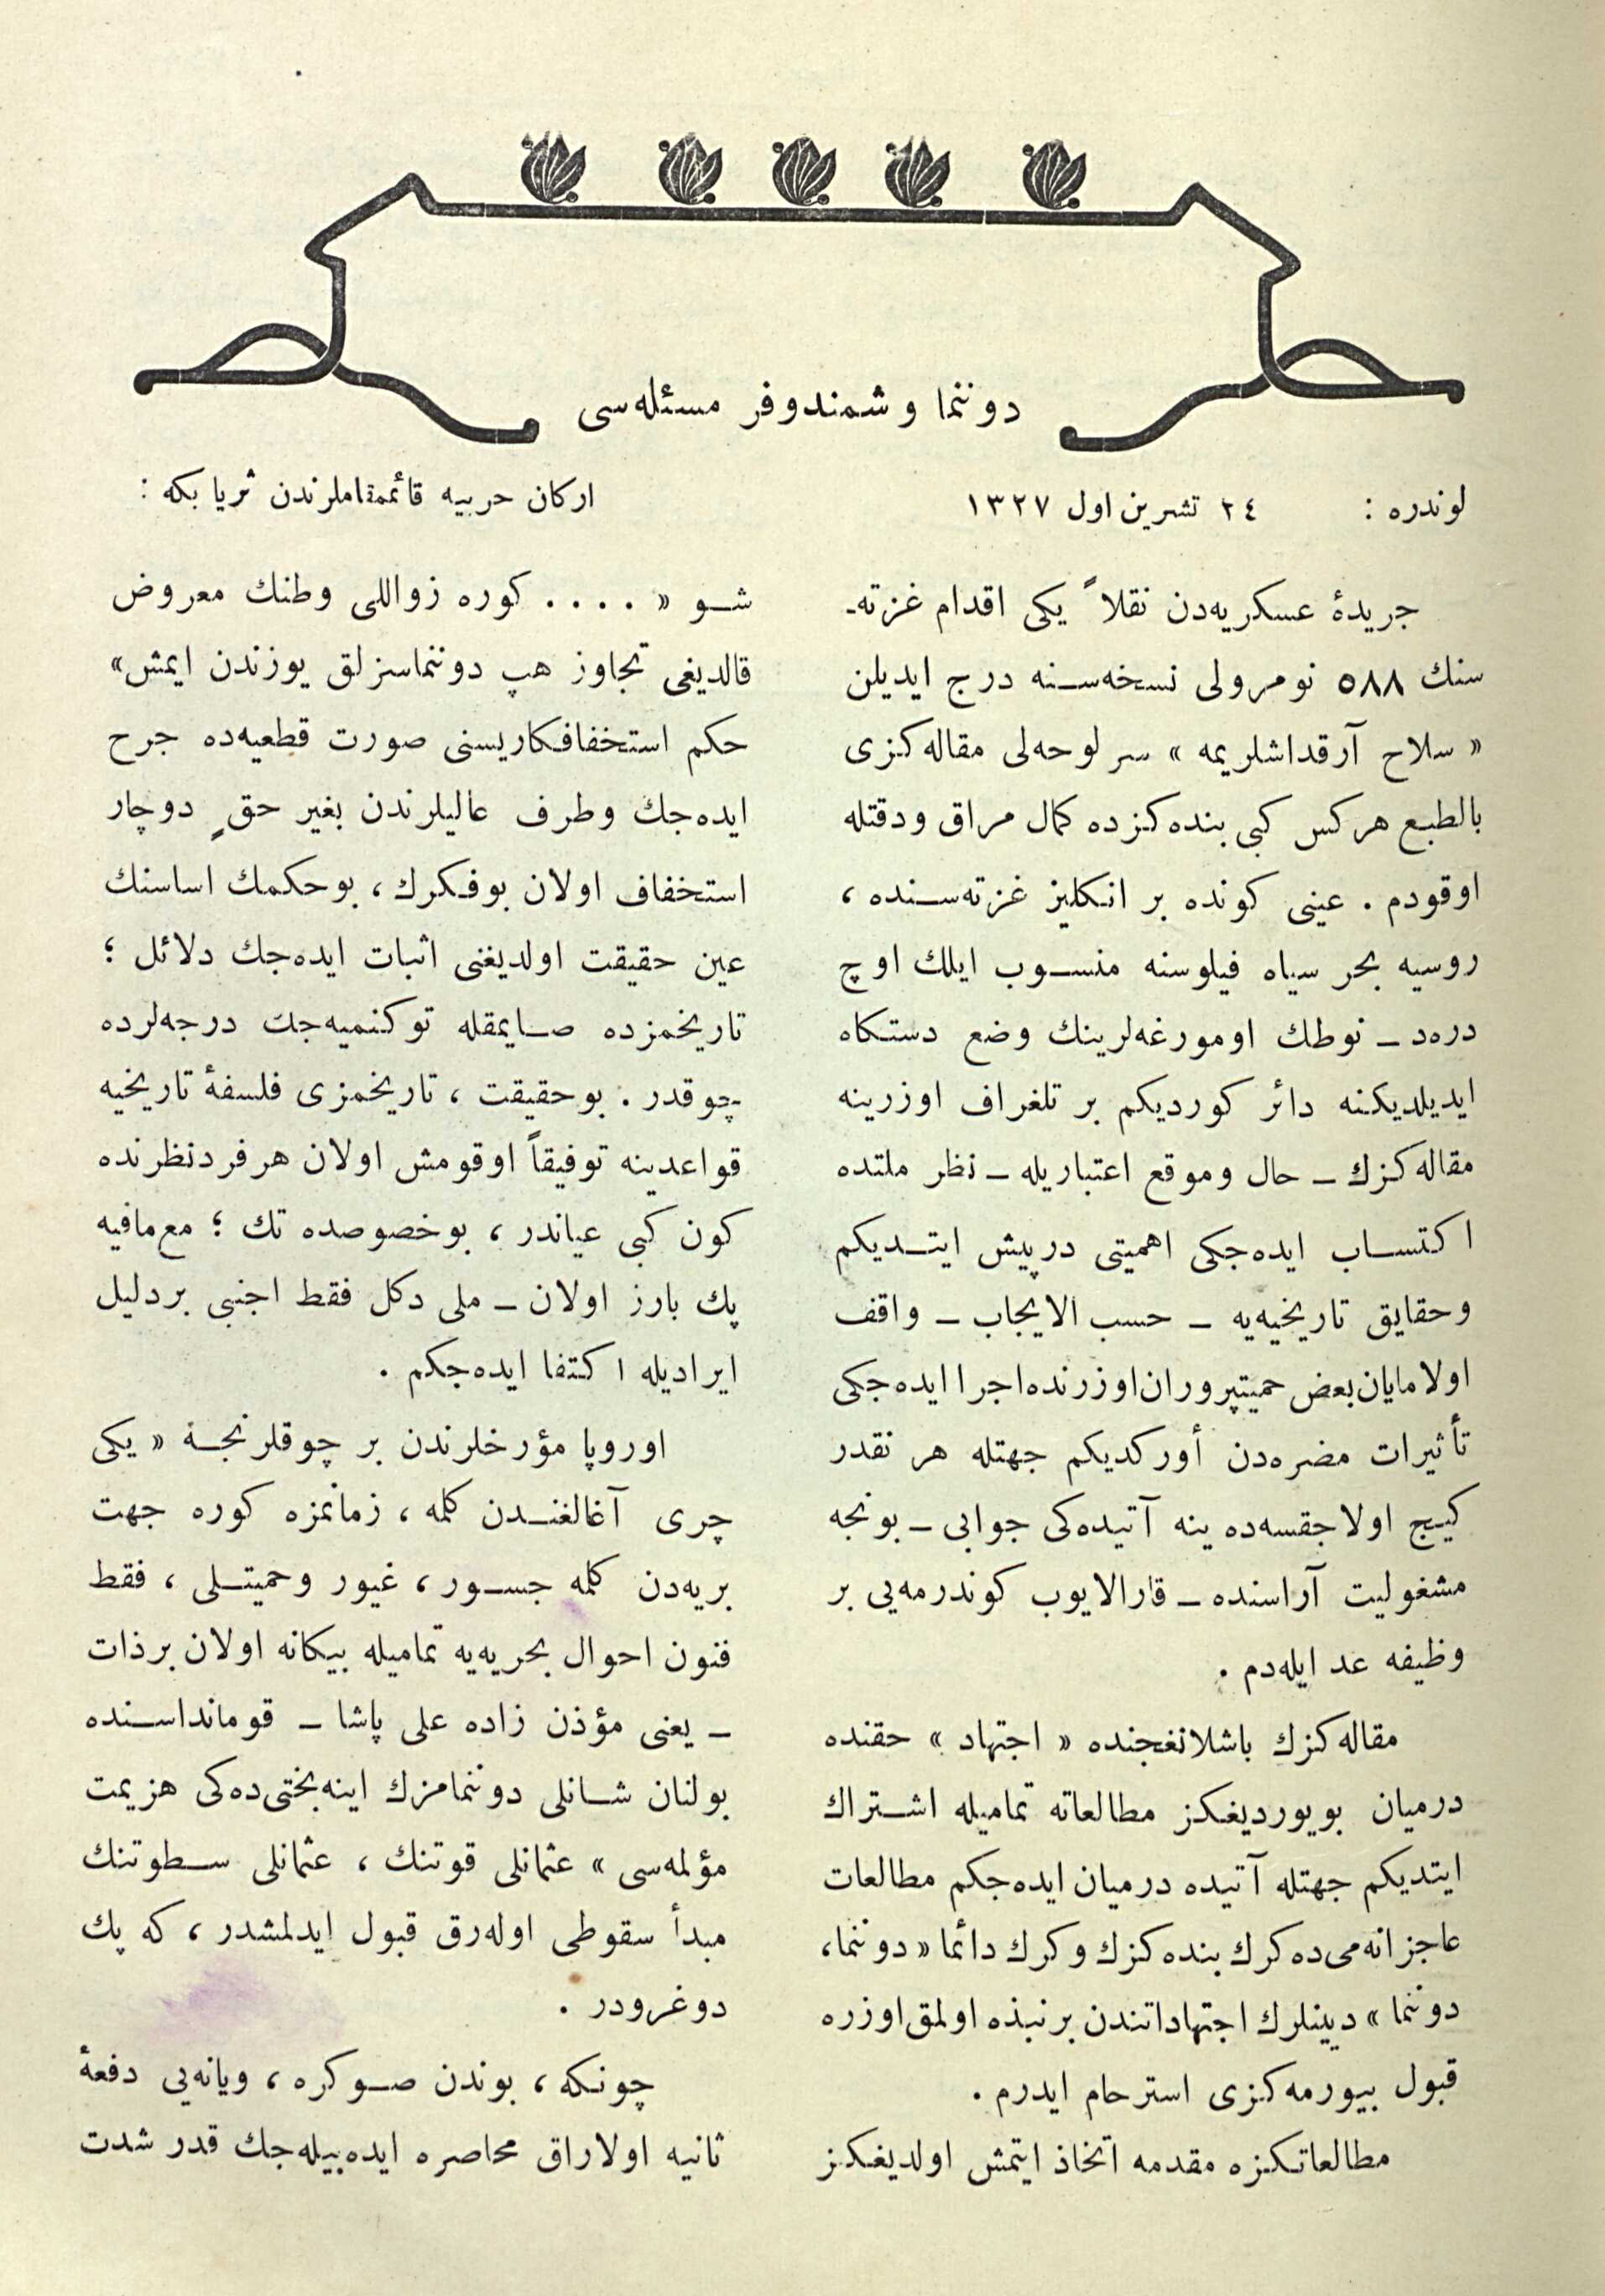 دوننما و شمندوفر مسئله‌سی
لوندره : ٢٤ تشرین اول ١٣٢٧
اركان حربیه قائممقاملرندن ثریا بكه :
جریدهٔ عسكریه‌دن نقلاً یكی اقدام غزته‌ـ
سنك ٥٨٨ نومرولی نسخه‌سنه درج ایدیلن
« سلاح آرقداشلریمه » سر لوحه‌لی مقاله‌كزی
بالطبع هركس كبی بنده‌كزده كمال مراق ودقتله
اوقودم . عینی كونده بر انكلیز غزته‌سنده ،
روسیه بحر سیاه فیلوسنه منسوب ایلك اوچ
دره‌د ـ نوطك اومورغه‌لرینك وضع دستكاه
ایدیلدیكنه دائر كوردیكم بر تلغراف اوزرینه
مقاله‌كزك ـ حال وموقع اعتباریله ـ نظر ملتده
اكتساب ایده‌جكی اهمیتی درپیش ایتدیكم
وحقایق تاریخیه‌یه ـ حسب الایجاب ـ واقف
اولامایان بعض حمیتپروران اوزرنده اجرا ایده‌جكی
تأثیرات مضره‌دن أوركدیكم جهتله هر نقدر
كیج اولاجقسه‌ده ینه آتیده‌كی جوابی ـ بونجه
مشغولیت آراسنده ـ قارالایوب كوندرمه‌یی بر
وظیفه عد ایله‌دم .
مقاله‌كزك باشلانغجنده « اجتهاد » حقنده
درمیان بویوردیغكز مطالعاته تمامیله اشتراك
ایتدیكم جهتله آتیده درمیان ایده‌جكم مطالعات
عاجزانه‌می‌ده كرك بنده‌كزك وكرك دائما « دوننما ،
دوننما » دینلرك اجتهاداتندن برنبذه اولمق اوزره
قبول بیورمه‌كزی استرحام ایدرم .
مطالعاتكزه مقدمه اتخاذ ایتمش اولدیغكز
شو « .... كوره زواللی وطنك معروض
قالدیغی تجاوز هپ دوننماسزلق یوزندن ایمش »
حكم استخفافكاریسنی صورت قطعیه‌ده جرح
ایده‌جك وطرف عالیلرندن بغیر حقٍ دوچار
استخفاف اولان بوفكرك ، بوحكمك اساسنك
عین حقیقت اولدیغنی اثبات ایده‌جك دلائل ؛
تاریخمزده صایمقله توكنمیه‌جك درجه‌لرده
چوقدر . بوحقیقت ، تاریخمزی فلسفهٔ تاریخیه
قواعدینه توفیقاً اوقومش اولان هر فرد نظرنده
كون كبی عیاندر ، بو خصوصده تك ؛ مع‌مافیه
پك بارز اولان ـ ملی دكل فقط اجنبی بردلیل
ایرادیله اكتفا ایده‌جكم .
اوروپا مؤرخلرندن بر چوقلرنجه « یكی
چری آغالغندن كلمه ، زمانمزه كوره جهت
بریه‌دن كلمه جسور ، غیور وحمیتلی ، فقط
فنون احوال بحریه‌یه تمامیله بیكانه اولان برذات
ـ یعنی مؤذن زاده علی پاشا ـ قومانداسنده
بولنان شانلی دوننمامزك اینه‌بختی‌ده‌كی هزیمت
مؤلمه‌سی » عثمانلی قوتنك ، عثمانلی سطوتنك
مبدأ سقوطی اوله‌رق قبول ایدلمشدر ، كه پك
دوغرودر .
چونكه ، بوندن صوكره ، ویانه‌یی دفعهٔ
ثانیه اولاراق محاصره ایده‌بیله‌جك قدر شدت